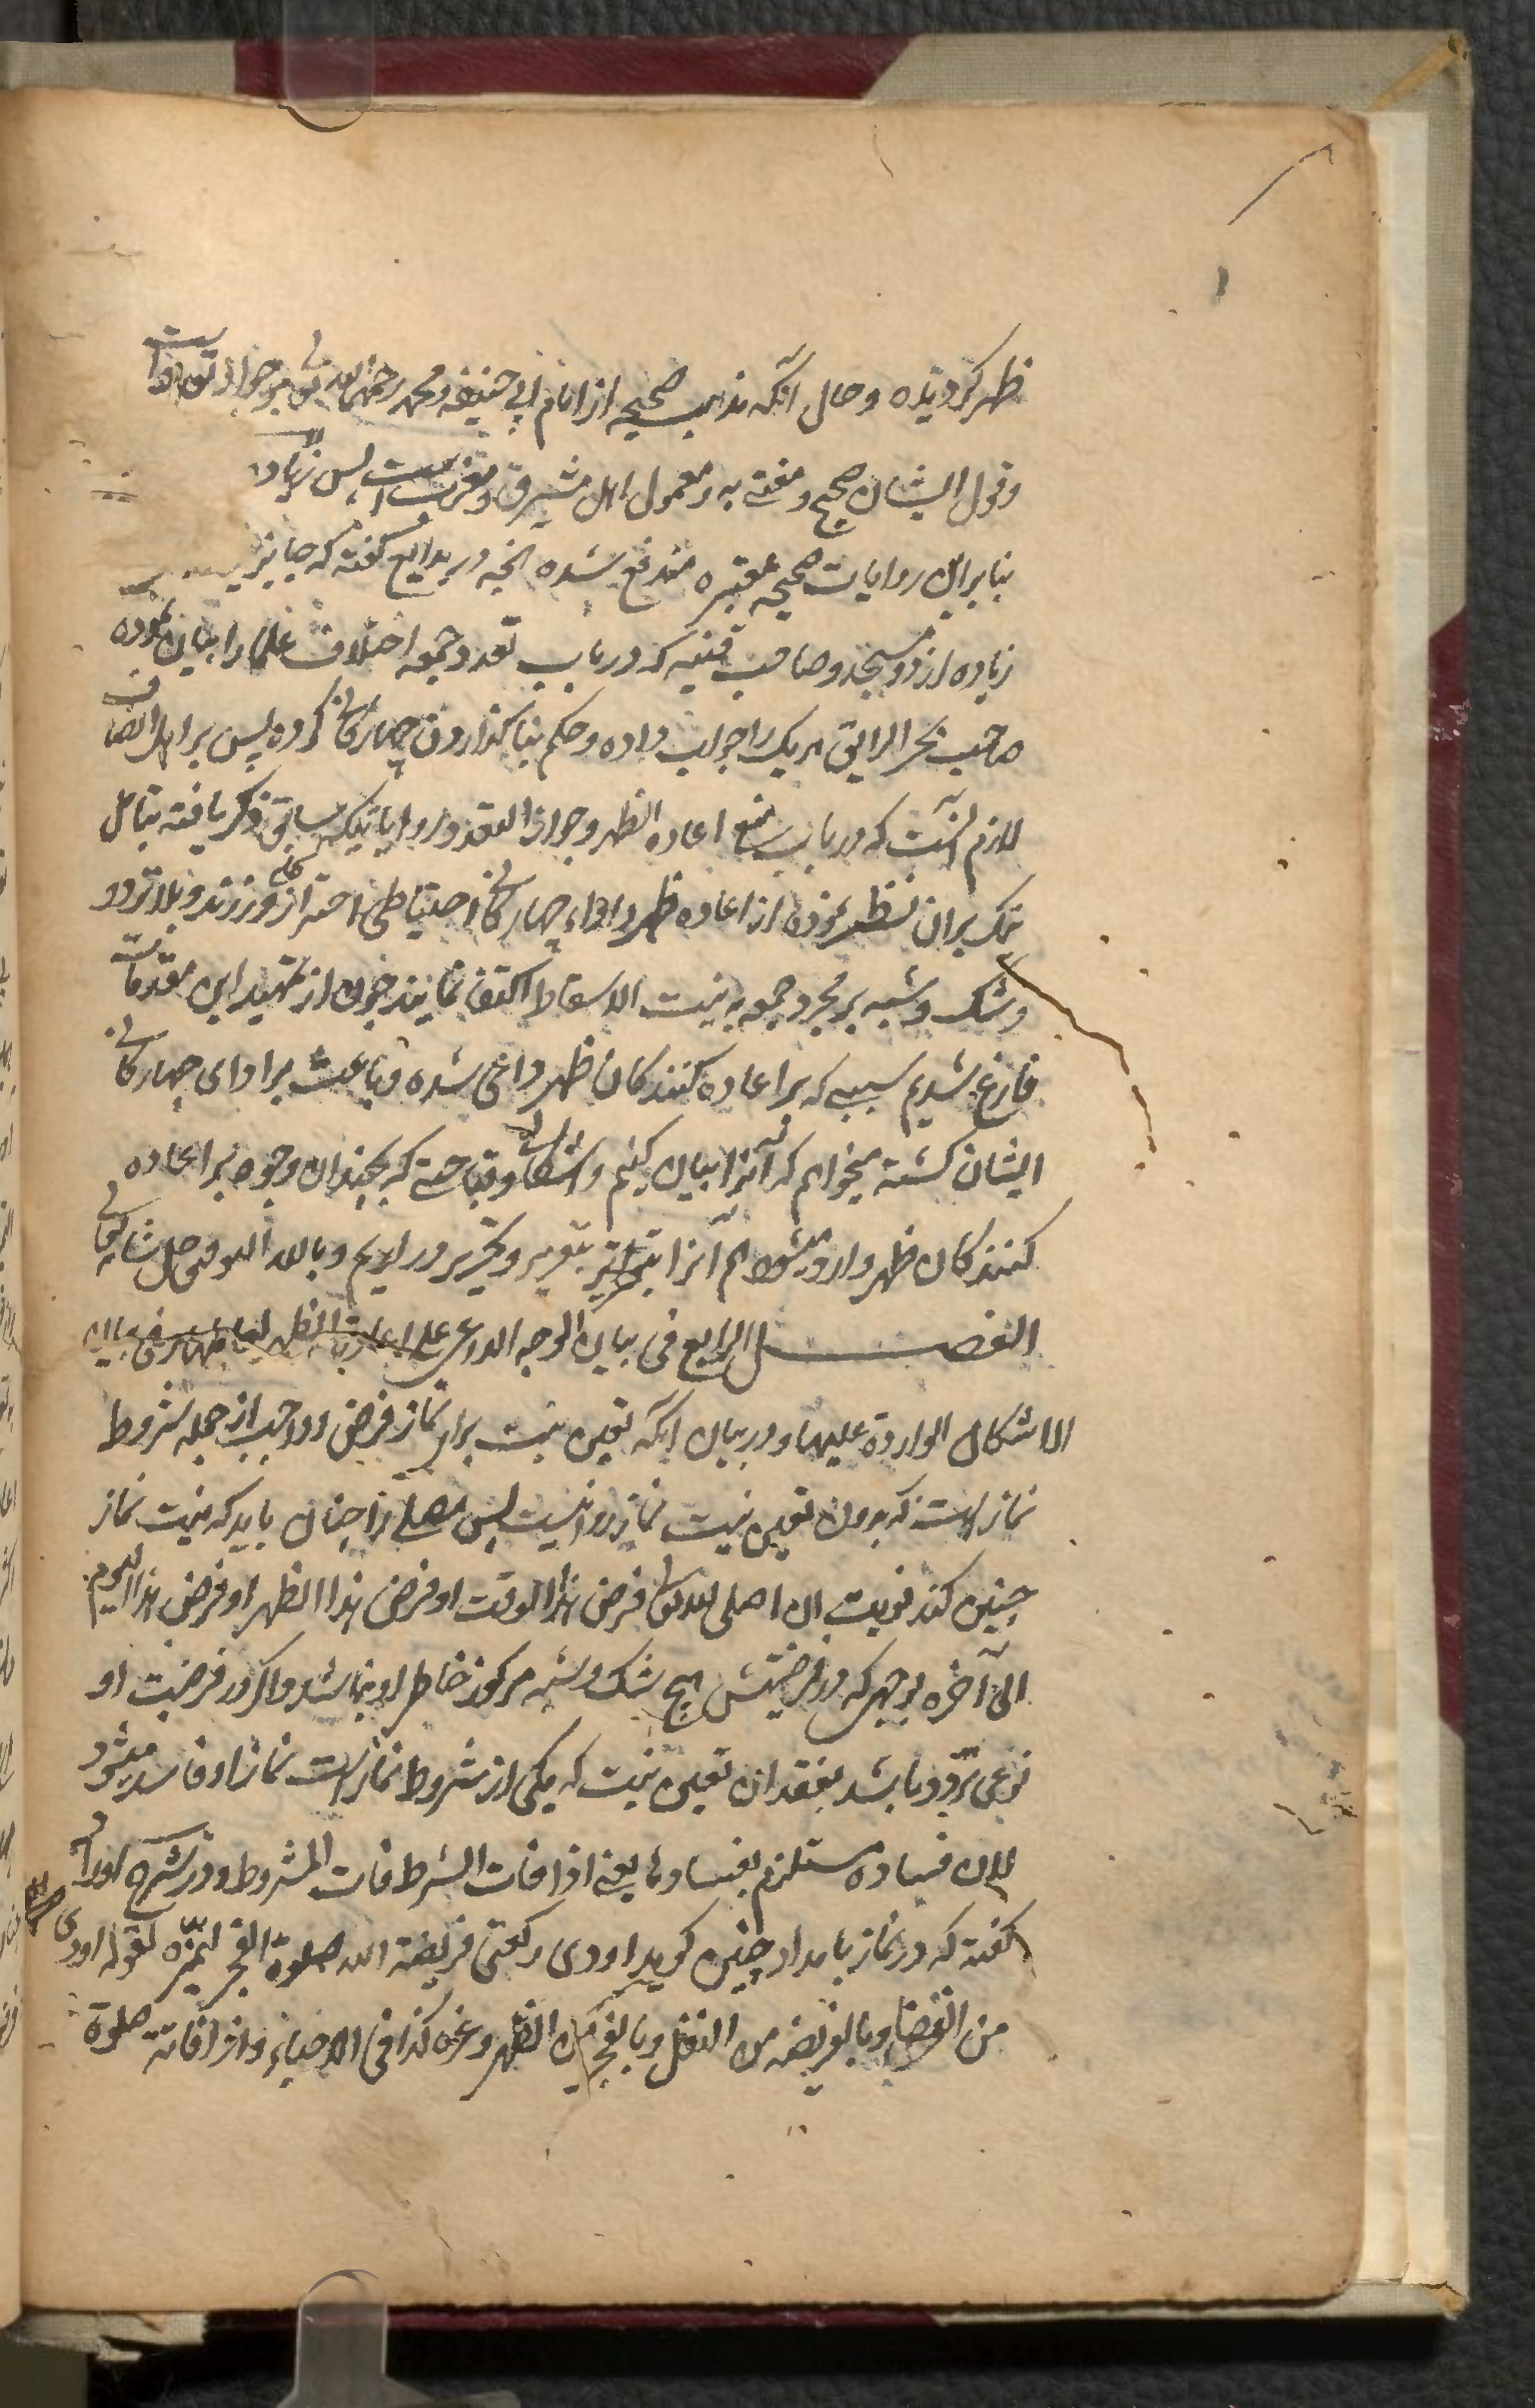 ظهر کردیده و حال آنکه مذهب صحیح از امام ابی حنیفه و محمد رحمهما الله تعالی بر جواز تعدد است
و قول ایشان صحیح و مفتی به و معمول اهل مشرق و مغرب است پس زیاد
بنا بر این روایات صحیحه معتبره مندفع شده انچه در بدایع گفته که جایز نیست
زیاده از دو مسجد و صاحب قنیه که در باب تعدد جمعه اختلاف علما را بیان نموده
صاحب بحر الرایق هر یک را جواب داده و حکم بنا گذاردن چهارگانی کرده پس بر اهل انصاف
لازم آنست که در باب منع اعاده الظهر و جواز التعدد روایاتیکه سابق ذکر یافته بتامل
تمام بران نظر نموده از اعاده ظهر و اداء چهارگانی احتیاطی احتراز کلی ورزند و بلا تردد
و شک و شبه بر مجرد جمعه به نیت الاسقاط اکتفا نمایند چون از تمهید این مقدمات
فارغ شدیم سببی که بر اعاده کنندکان ظهر داعی شده و باعث بر ادای چهارگانی
ایشان کشته میخواهم که آنرا بیان کنیم و اشکالی و قباحتی که بچندان وجوه بر اعاده
کنندکان ظهر وارد میشود هم آنرا بتقریر و تحریر در اریم و بالله التوفیق جل شانه تعالی
الفصل الرابع فی بیان الوجه الداعی علی اعادة الظهر
الاشکال الواردة علیها و در بیان انکه تعین نیت برای نماز فرض و واجب از جمله شروط
نماز است که بدون تعین نیت نماز روا نیست پس مصلی را چنان باید که نیت نماز
چنین کند نویت ان اصلی لله تعالی فرض هذا الوقت او فرض هذا الظهر او فرض هذا الیوم
الی آخره بوجهی که در فرضیتش هیچ شک و شبه مرکوز خاطر او نباشد و اگر در فرضیت او
نوعی تردد باشد بفقدان تعین نیت که یکی از شروط نماز است نماز او فاسد میشود
لان فساده مستلزم بفسادها یعنی اذا فات الشرط فات المشروط و در شرح اوراد
گفته که در نماز بامداد چنین گوید اودی رکعتی فریضة الله صلوة الفجر لیمیزه بقوله اودی
من القضا و بالفریضه من النفل و بالفجر من الظهر و غیره کذا فی الاحیاء و اذا فاتته صلوة